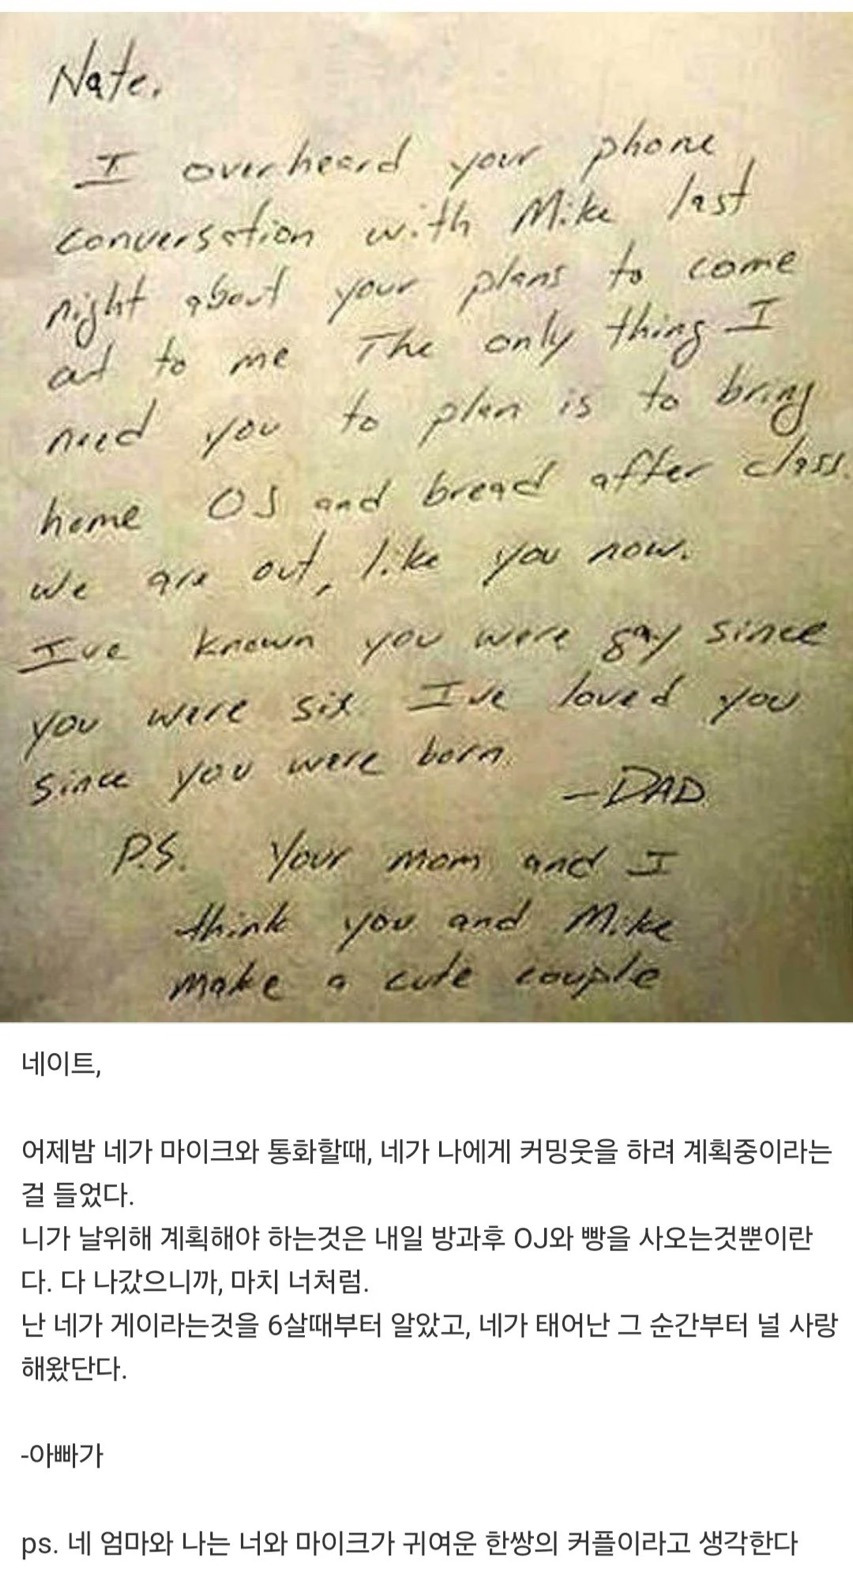 Nate,
I overheard your phone
conversation with Mike last
night about your plans to come
out to me The only thing I
need you to plan is to bring
home OJ and bread after class.
We are out, like you now.
I've known you were gay since
you were six. I've loved you
since you were born.
-DAD
P.S. Your mom and I
think you and Mike
make a cute couple
네이트,
어제밤 네가 마이크와 통화할때, 네가 나에게 커밍웃을 하려 계획중이라는
걸 들었다.
니가 날위해 계획해야 하는것은 내일 방과후 OJ와 빵을 사오는것뿐이란
다. 다 나갔으니까, 마치 너처럼.
난 네가 게이라는것을 6살때부터 알았고, 네가 태어난 그 순간부터 널 사랑
해왔단다.
-아빠가
ps. 네 엄마와 나는 너와 마이크가 귀여운 한쌍의 커플이라고 생각한다